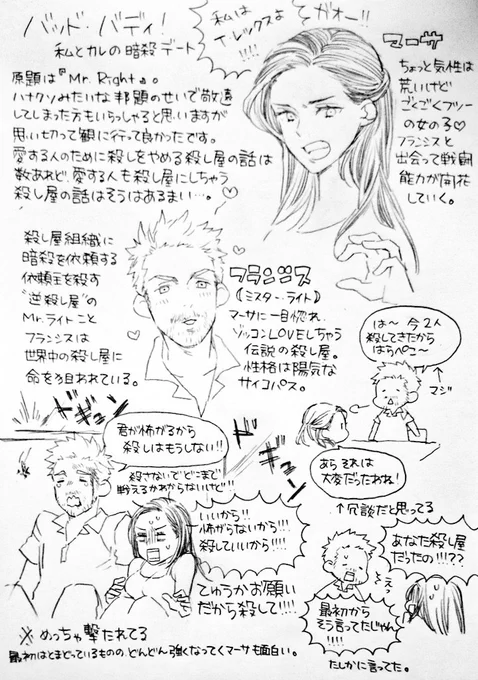 バッド・バディ！
私とカレの暗殺デート
原題は『Mr. Right』。
ハナクソみたいな邦題のせいで敬遠
してしまった方もいらっしゃると思いますが
思い切って観に行って良かったです。
愛する人のために殺しをやめる殺し屋の話は
数あれど、愛する人も殺し屋にしちゃう
殺し屋の話はそうはあるまい…。
私は
ティレックスよ
!!!
ガオー!!
マーサ
ちょっと気性は
荒いけど
ごくごくフツー
の女の子♡
フランシスと
出会って戦闘
能力が開花
していく。
殺し屋組織に
暗殺を依頼する
依頼主を殺す
"逆殺し屋"の
Mr.ライトこと
フランシスは
世界中の殺し屋に
命を狙われている。
フランシス
(ミスター・ライト)
マーサに一目惚れ、
ゾッコンLOVEしちゃう
伝説の殺し屋。
性格は陽気な
サイコパス。
は〜 今2人
殺してきたから
はらぺこ〜
↑
マジ
あら それは
大変だったわね！
↑冗談だと思ってる
君が怖がるから
殺しはもうしない!!
殺さないでどこまで
戦えるかわからないけど!!
いいから!!
怖がらないから!!!
殺していいから!!!
てゆうかお願い
だから殺して!!!!
※めっちゃ撃たれてる
あなた殺し屋
だったの!!!??
えっ
最初から
そう言ってたじゃん
!!!!
たしかに言ってた。
最初はとまどっているものの、どんどん強くなってくマーサも面白い。